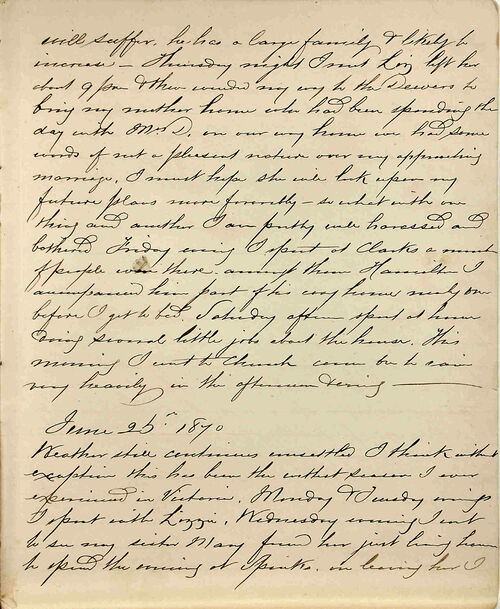 will suffer, he has a large family & likely to
increase – Thursday night I met Lizz left her
about 9 pm & then wended my way to the Dewers to
bring my mother home who had been spending the
day with Mrs D. on our way home we had some
words of not a pleasant nature over my approaching
marriage, I must hope she will look upon my
future plans more favorably – so what with one
thing and another I am pretty well harassed and
bothered Friday evening I spent at Clarks a number
of people were there amongst them Hamilton I
accompanied him part of his way home nearly one
before I got to bed, Saturday aftern spent at home
doing several little jobs about the house. This
morning I went to Church came on to rain
very heavily in the afternoon & evening
June 25th 1870
Weather still continues unsettled I think without
exception this has been the wettest season I ever
experienced in Victoria, Monday & Tuesday evenings
I spent with Lizzie, Wednesday evening I went
to see my sister Mary found her just being home
to spend the evening at Spinks. on leaving her I